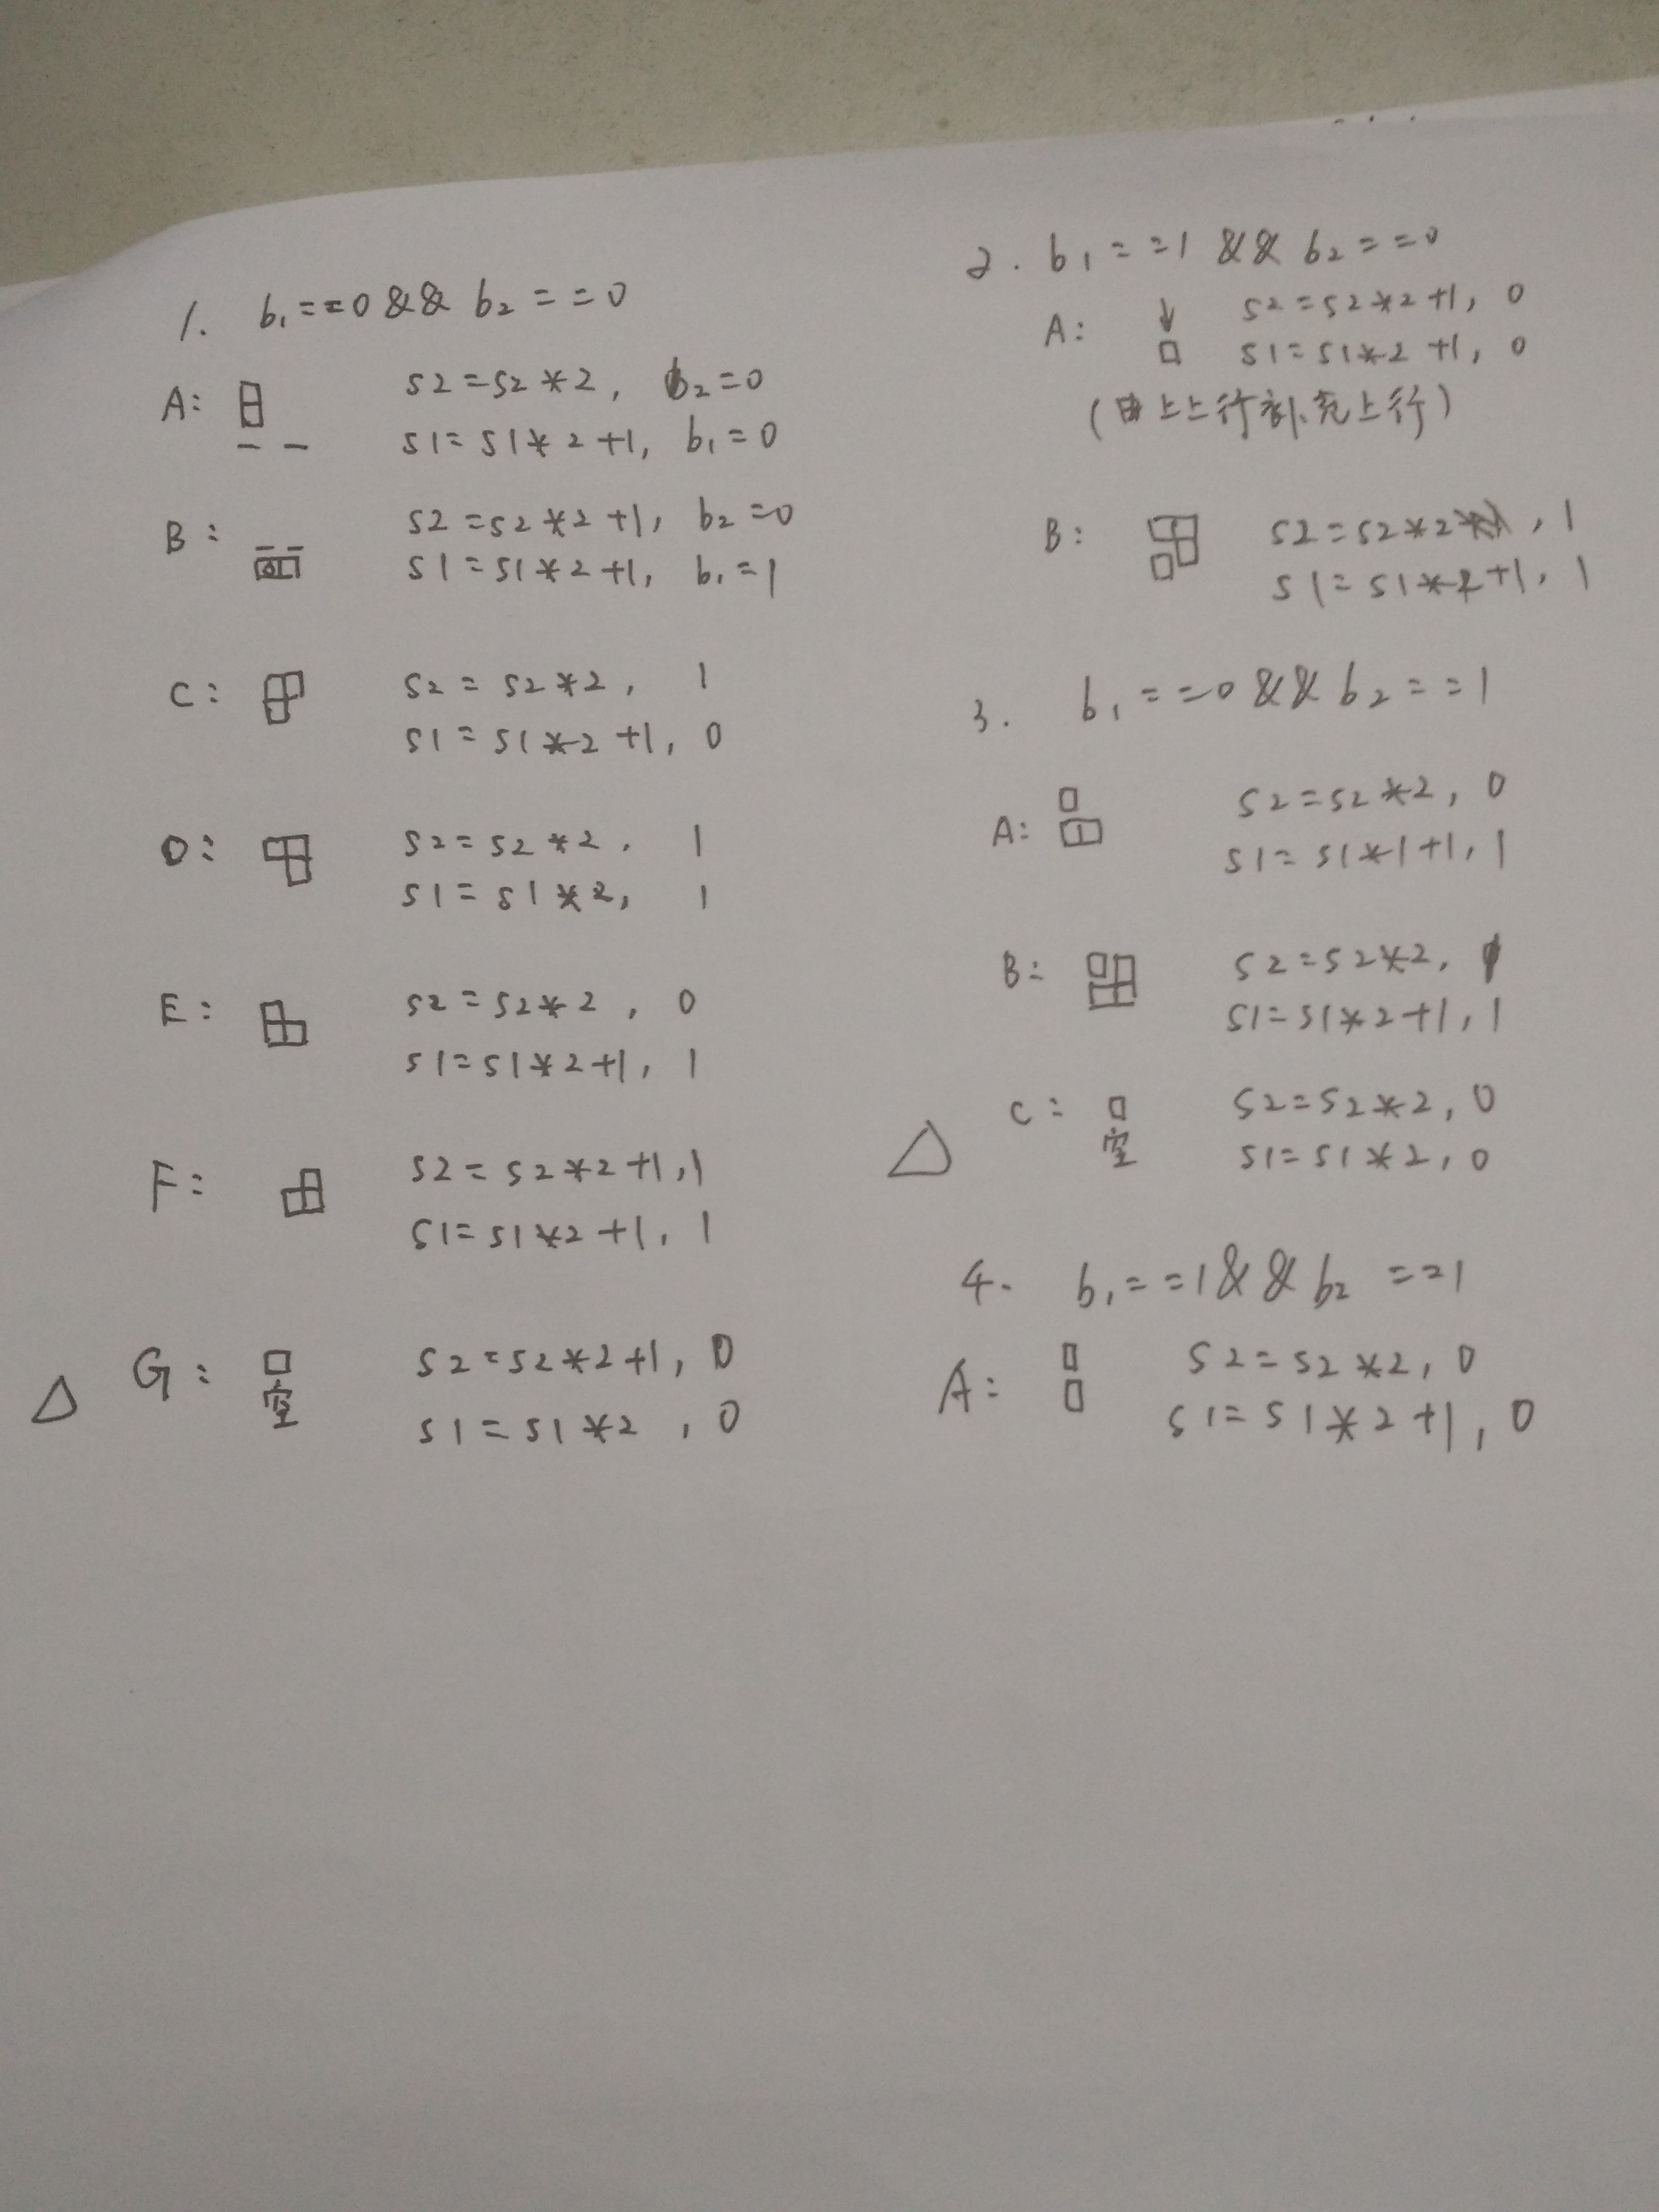 1. b1==0 && b2==0
A: s2=s2*2, b2=0
s1=s1*2+1, b1=0
B: s2=s2*2+1, b2=0
s1=s1*2+1, b1=1
C: s2=s2*2, 1
s1=s1*2+1, 0
D: s2=s2*2, 1
s1=s1*2, 1
E: s2=s2*2, 0
s1=s1*2+1, 1
F: s2=s2*2+1, 1
s1=s1*2+1, 1
G: s2=s2*2+1, 0
空 s1=s1*2, 0
2. b1==1 && b2==0
A: s2=s2*2+1, 0
s1=s1*2+1, 0
(由上上行补充上行)
B: s2=s2*2, 1
s1=s1*2+1, 1
3. b1==0 && b2==1
A: s2=s2*2, 0
s1=s1*1+1, 1
B: s2=s2*2,
s1=s1*2+1, 1
C: s2=s2*2, 0
空 s1=s1*2, 0
4. b1==1 && b2==1
A: s2=s2*2, 0
s1=s1*2+1, 0